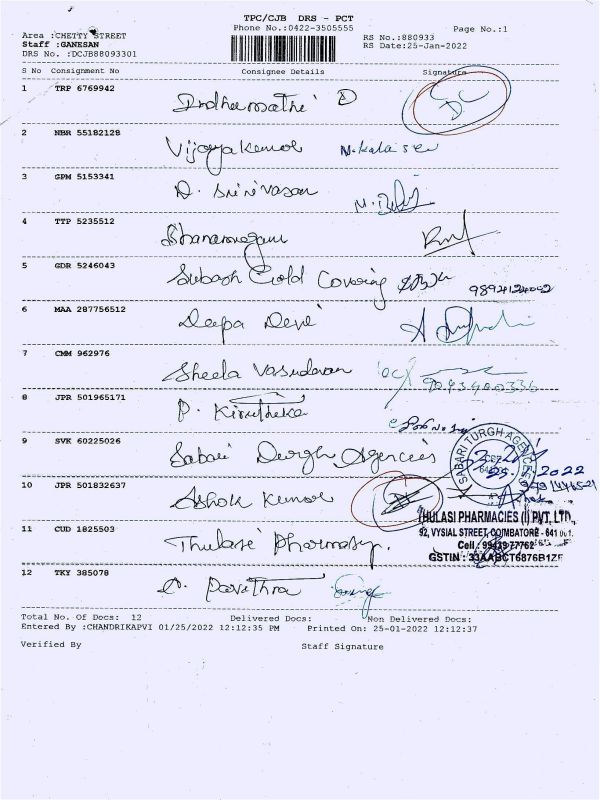 TPC/CJB DRS - PCT
Phone No.:0422-3505555
Page No.:1
Area :CHETTY STREET
Staff :GANESAN
DRS No. :DCJB88093301
RS No.:880933
RS Date:25-Jan-2022
S No Consignment No Consignee Details Signature
1 TRP 6769942
2 NBR 55182128 Vijaya Kumar N. Kalaiser
3 GPM 5153341 D. Srinivasan
4 TTP 5235512
5 GDR 5246043 Subash Gold Covering 9894124002
6 MAA 287756512 Deepa Devi
7 CMM 962976 Sheela Vasudevan
8 JPR 501965171 P. Kiruthika
9 SVK 60225026 Sabari Durgh Agencies
SABARI TURGH AGENCIES
2022
10 JPR 501832637 Ashok Kumar
THULASI PHARMACIES (I) PVT, LTD.,
92, VYSIAL STREET, COIMBATORE - 641 001.
11 CUD 1825503 Thulasi Pharmasy.
Cell : 99439 77762
GSTIN : 33AABCT6876B1ZF
12 TKY 385078 Pavithra
Total No. Of Docs: 12 Delivered Docs: Non Delivered Docs:
Entered By :CHANDRIKAPVI 01/25/2022 12:12:35 PM Printed On: 25-01-2022 12:12:37
Verified By Staff Signature